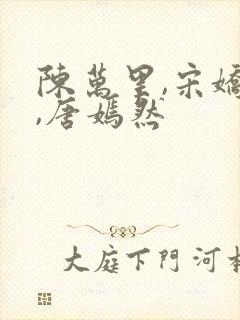 陳萬里,宋嬌
,唐嫣然
大庭下門河